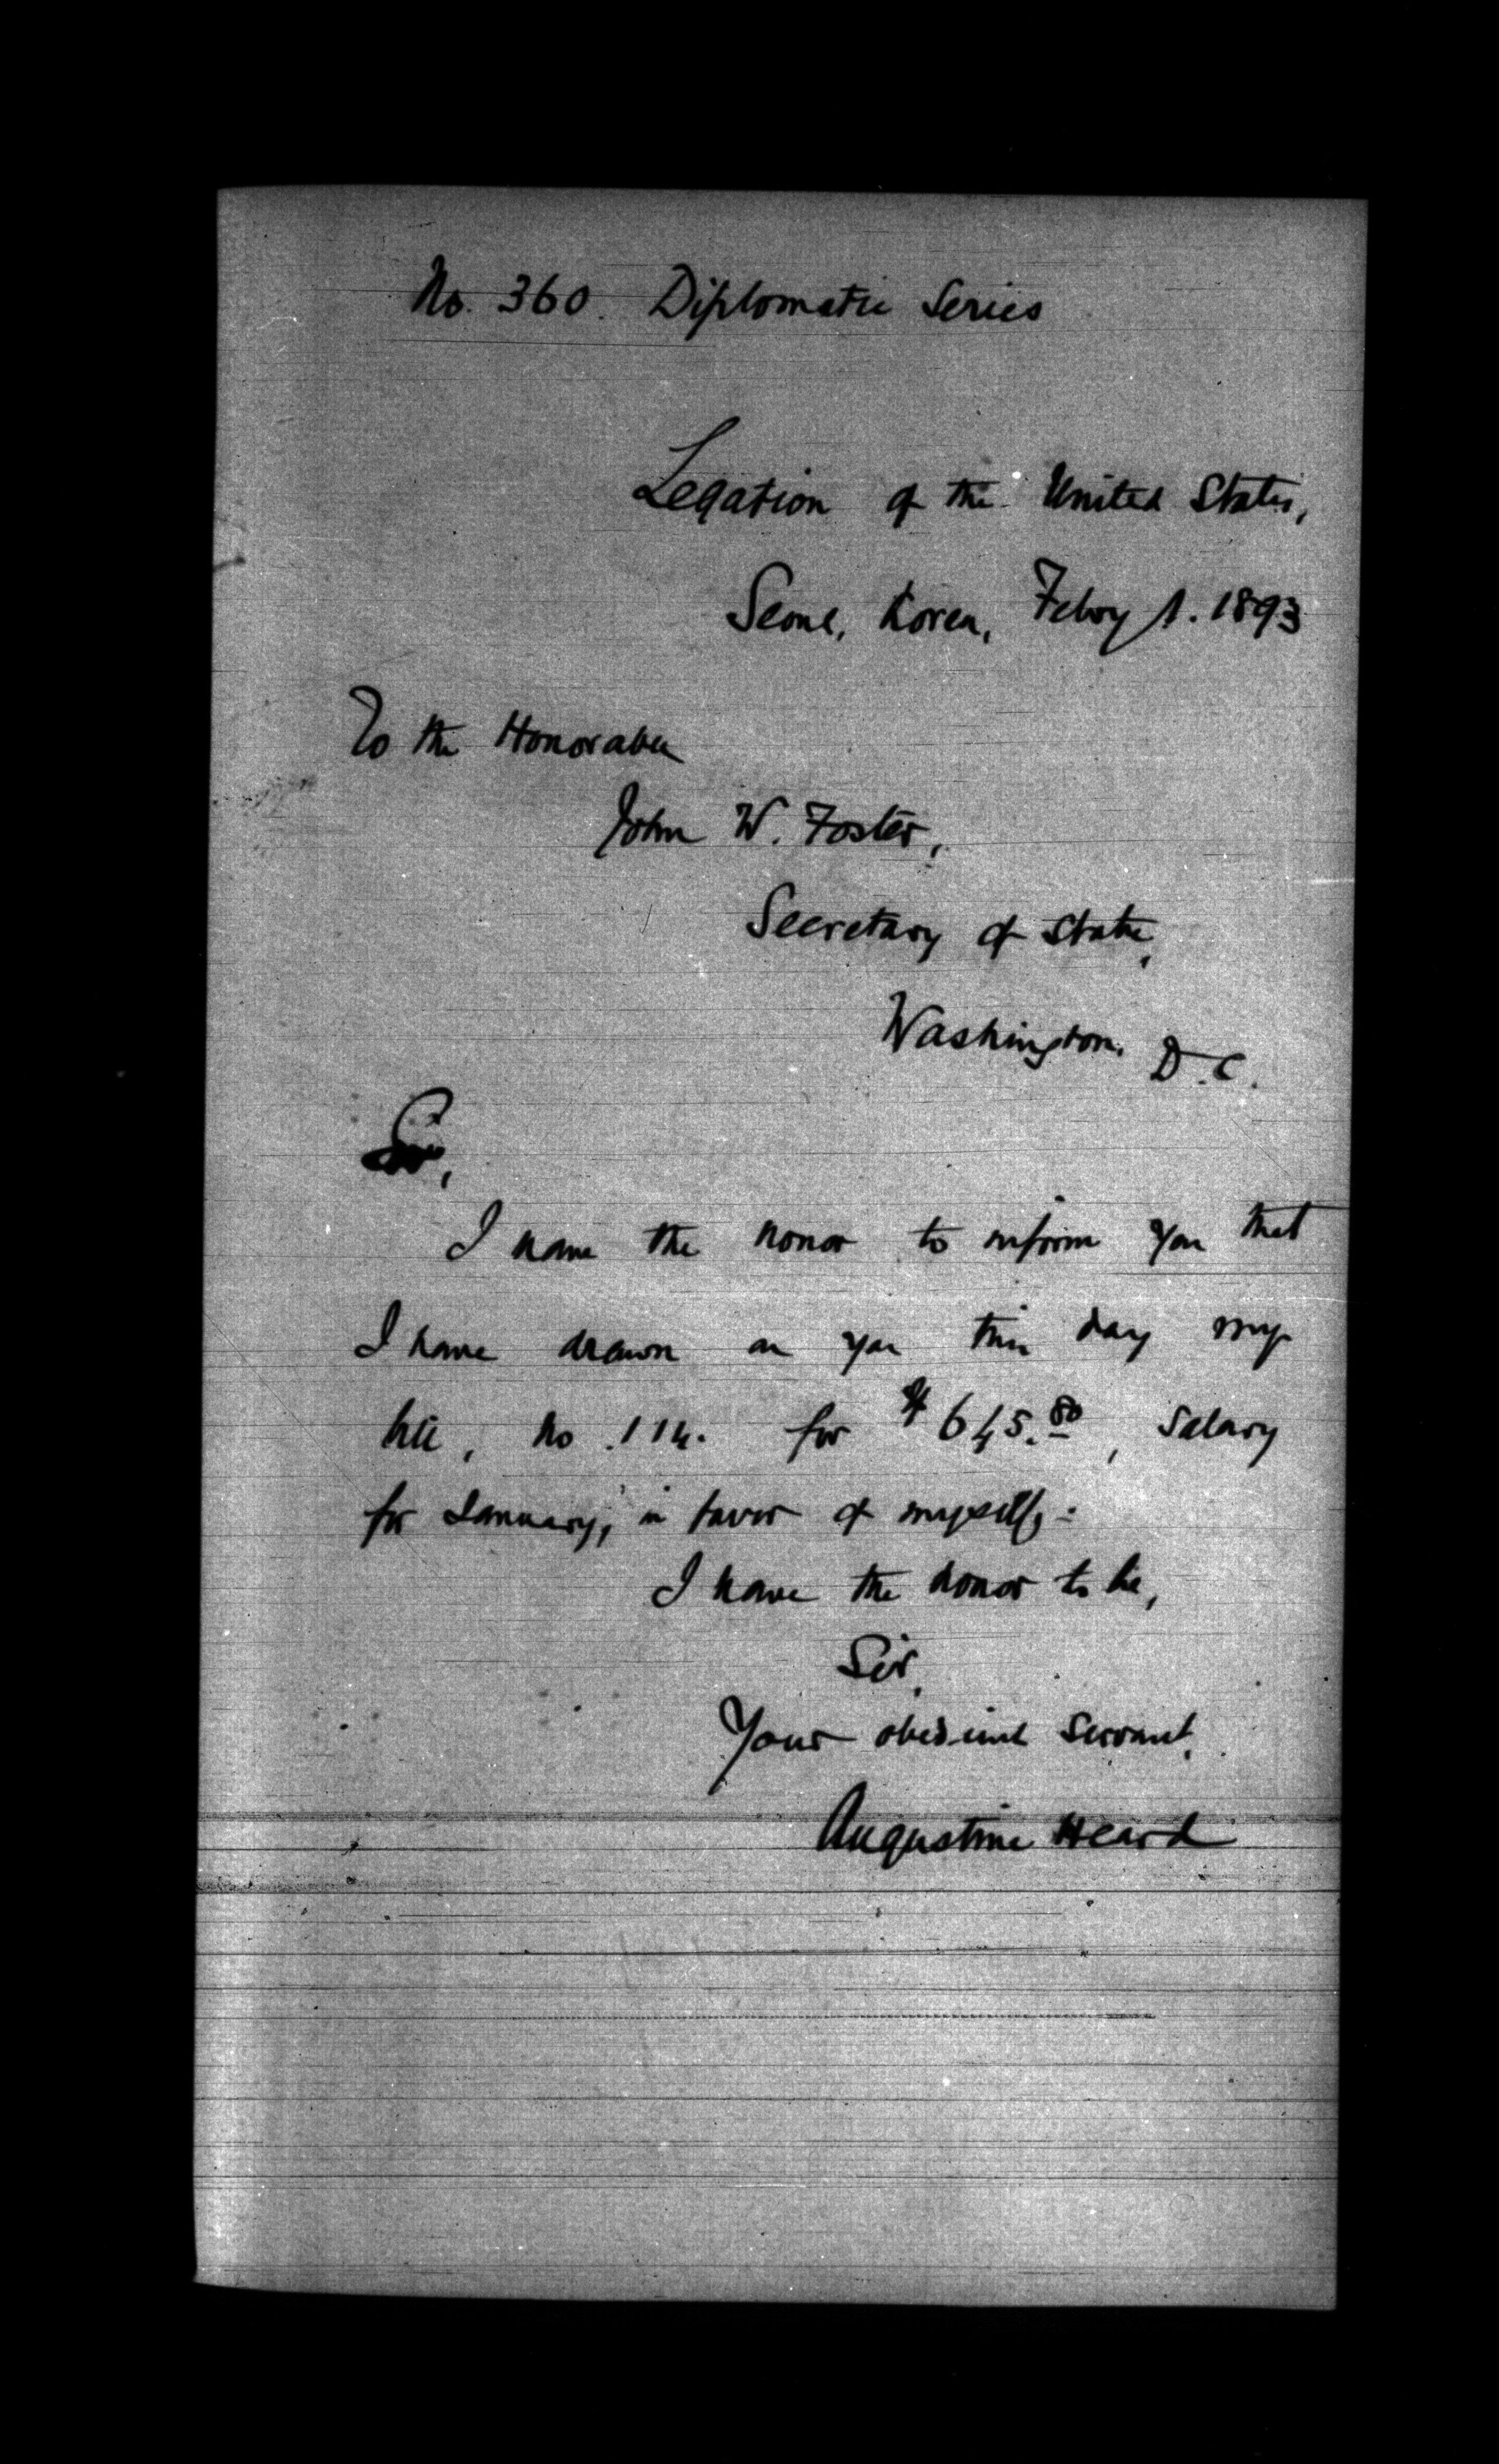 No. 360. Diplomatic Series
Legation of the United States,
Seoul, Korea, Febry 1. 1893
To the Honorable
John W. Foster,
Secretary of State,
Washington, D.C.
Sir,
I have the honor to inform you that
I have drawn on you this day my
bill, No. 114. for $645.80, salary
for January, in favor of myself.
I have the honor to be,
Sir,
Your obedient servant,
Augustine Heard